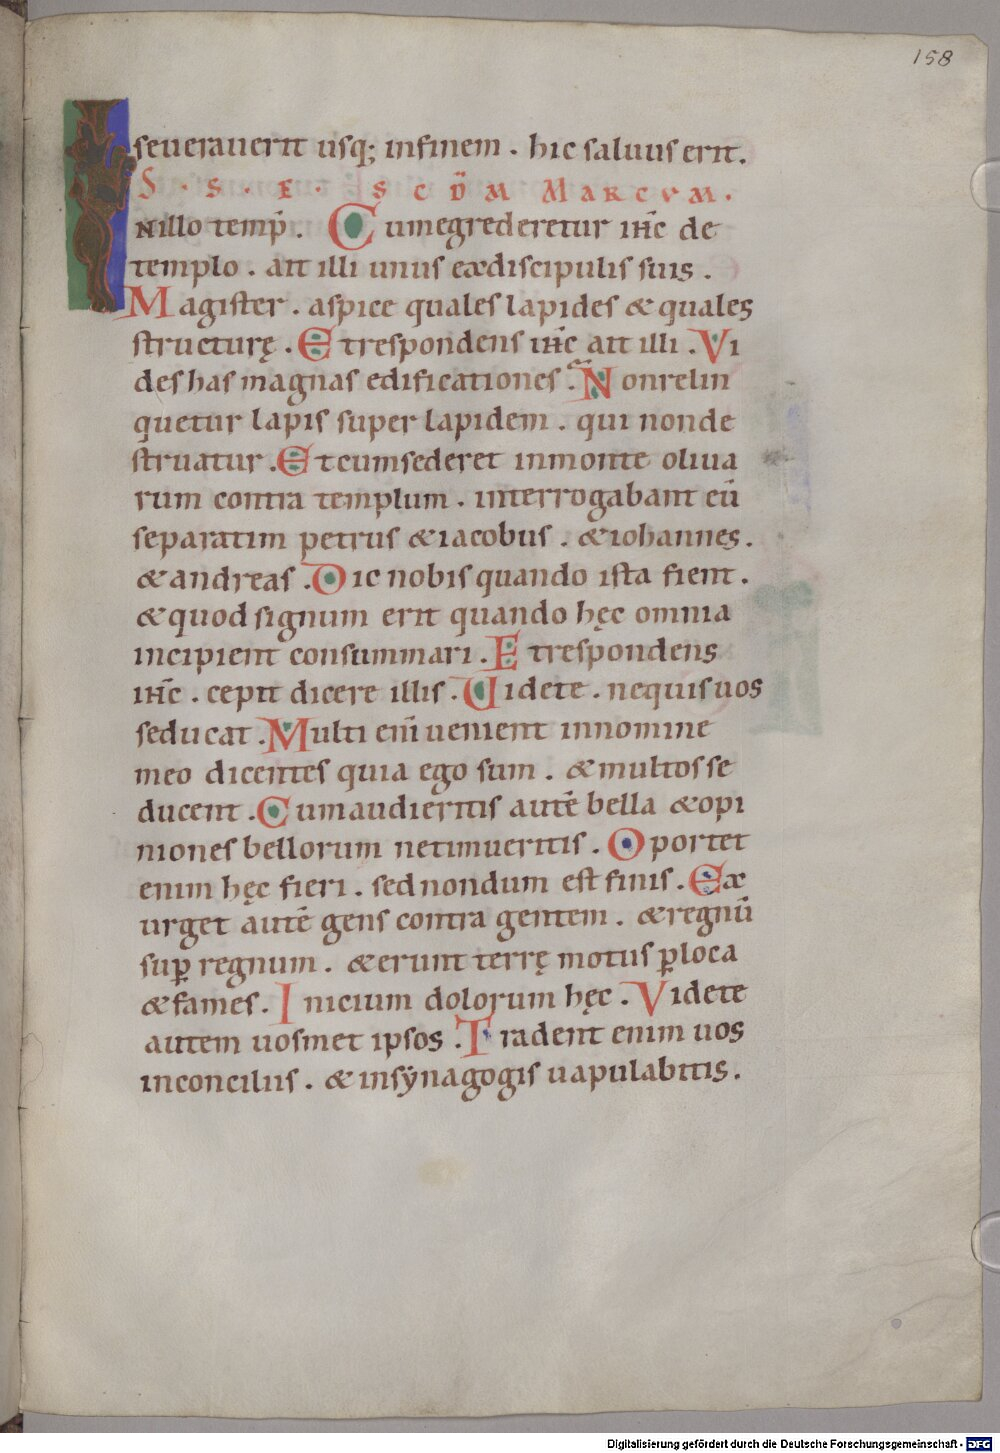 158
seuerauerit usq; infinem . hic saluus erit.
S . S . E . S C D̄M MARCVM .
INillo temp̄ . Cumegrederetur ih̄c de
templo . ait illi unus exdiscipulis suis .
Magister . aspice quales lapides & quales
structurę . Et respondens ih̄c ait illi . Vi
des has magnas edificationes . Nonrelin
quetur lapis super lapidem . qui nonde
struatur . Et cumsederet inmonte oliua
rum contra templum . interrogabant eū
separatim petrus & iacobus . & iohannes .
& andreas . Dic nobis quando ista fient .
& quod signum erit quando hęc omnia
incipient consummari . Et respondens
ih̄c . cepit dicere illis . Uidete . nequis uos
seducat . Multi eni̅ uenient innomine
meo dicentes quia ego sum . & multos se
ducent . Cumaudieritis autē bella & opi
niones bellorum netimueritis . Oportet
enim hęc fieri . sed nondum est finis . Ex
urget autē gens contra gentem . & regnū
sup̄ regnum . & erunt terrę motus ꝑ loca
& fames . Inicium dolorum hęc . Videte
autem uosmet ipsos . Tradent enim uos
inconciliis . & insẏnagogis uapulabitis .
Digitalisierung gefördert durch die Deutsche Forschungsgemeinschaft - DFG